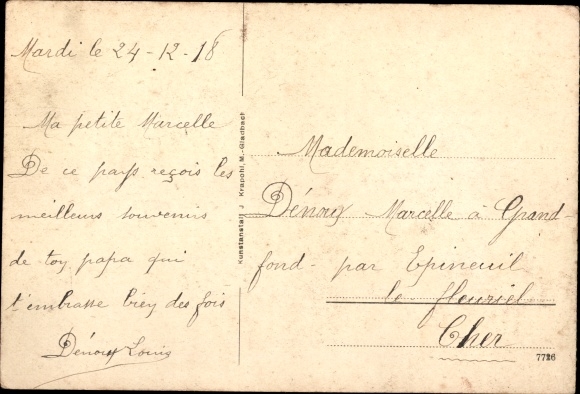 Mardi le 24-12-18
Ma petite Marcelle
De ce pays reçois les
meilleurs souvenirs
de ton papa qui
t'embrasse bien des fois
Dénoux Louis
Kunstanstalt J. Krapohl, M.-Gladbach
Mademoiselle
Dénoux Marcelle à Grand-
fond - par Epineuil
le fleuriel
Cher
7726